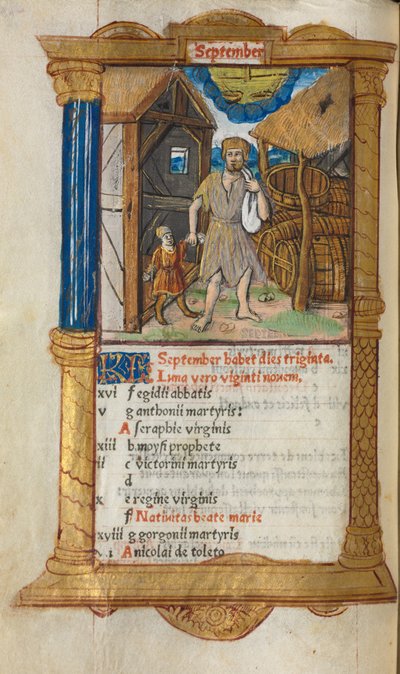 September
SEPTEM
KL September habet dies triginta.
Luna vero viginti novem.
xvi f egidii abbatis
v g anthonii martyris:
A seraphie virginis
xiii b moysi prophete
ii c victorini martyris
d
x e regine virginis
f Nativitas beate marie
xviii g gorgonii martyris
A nicolai de toleto